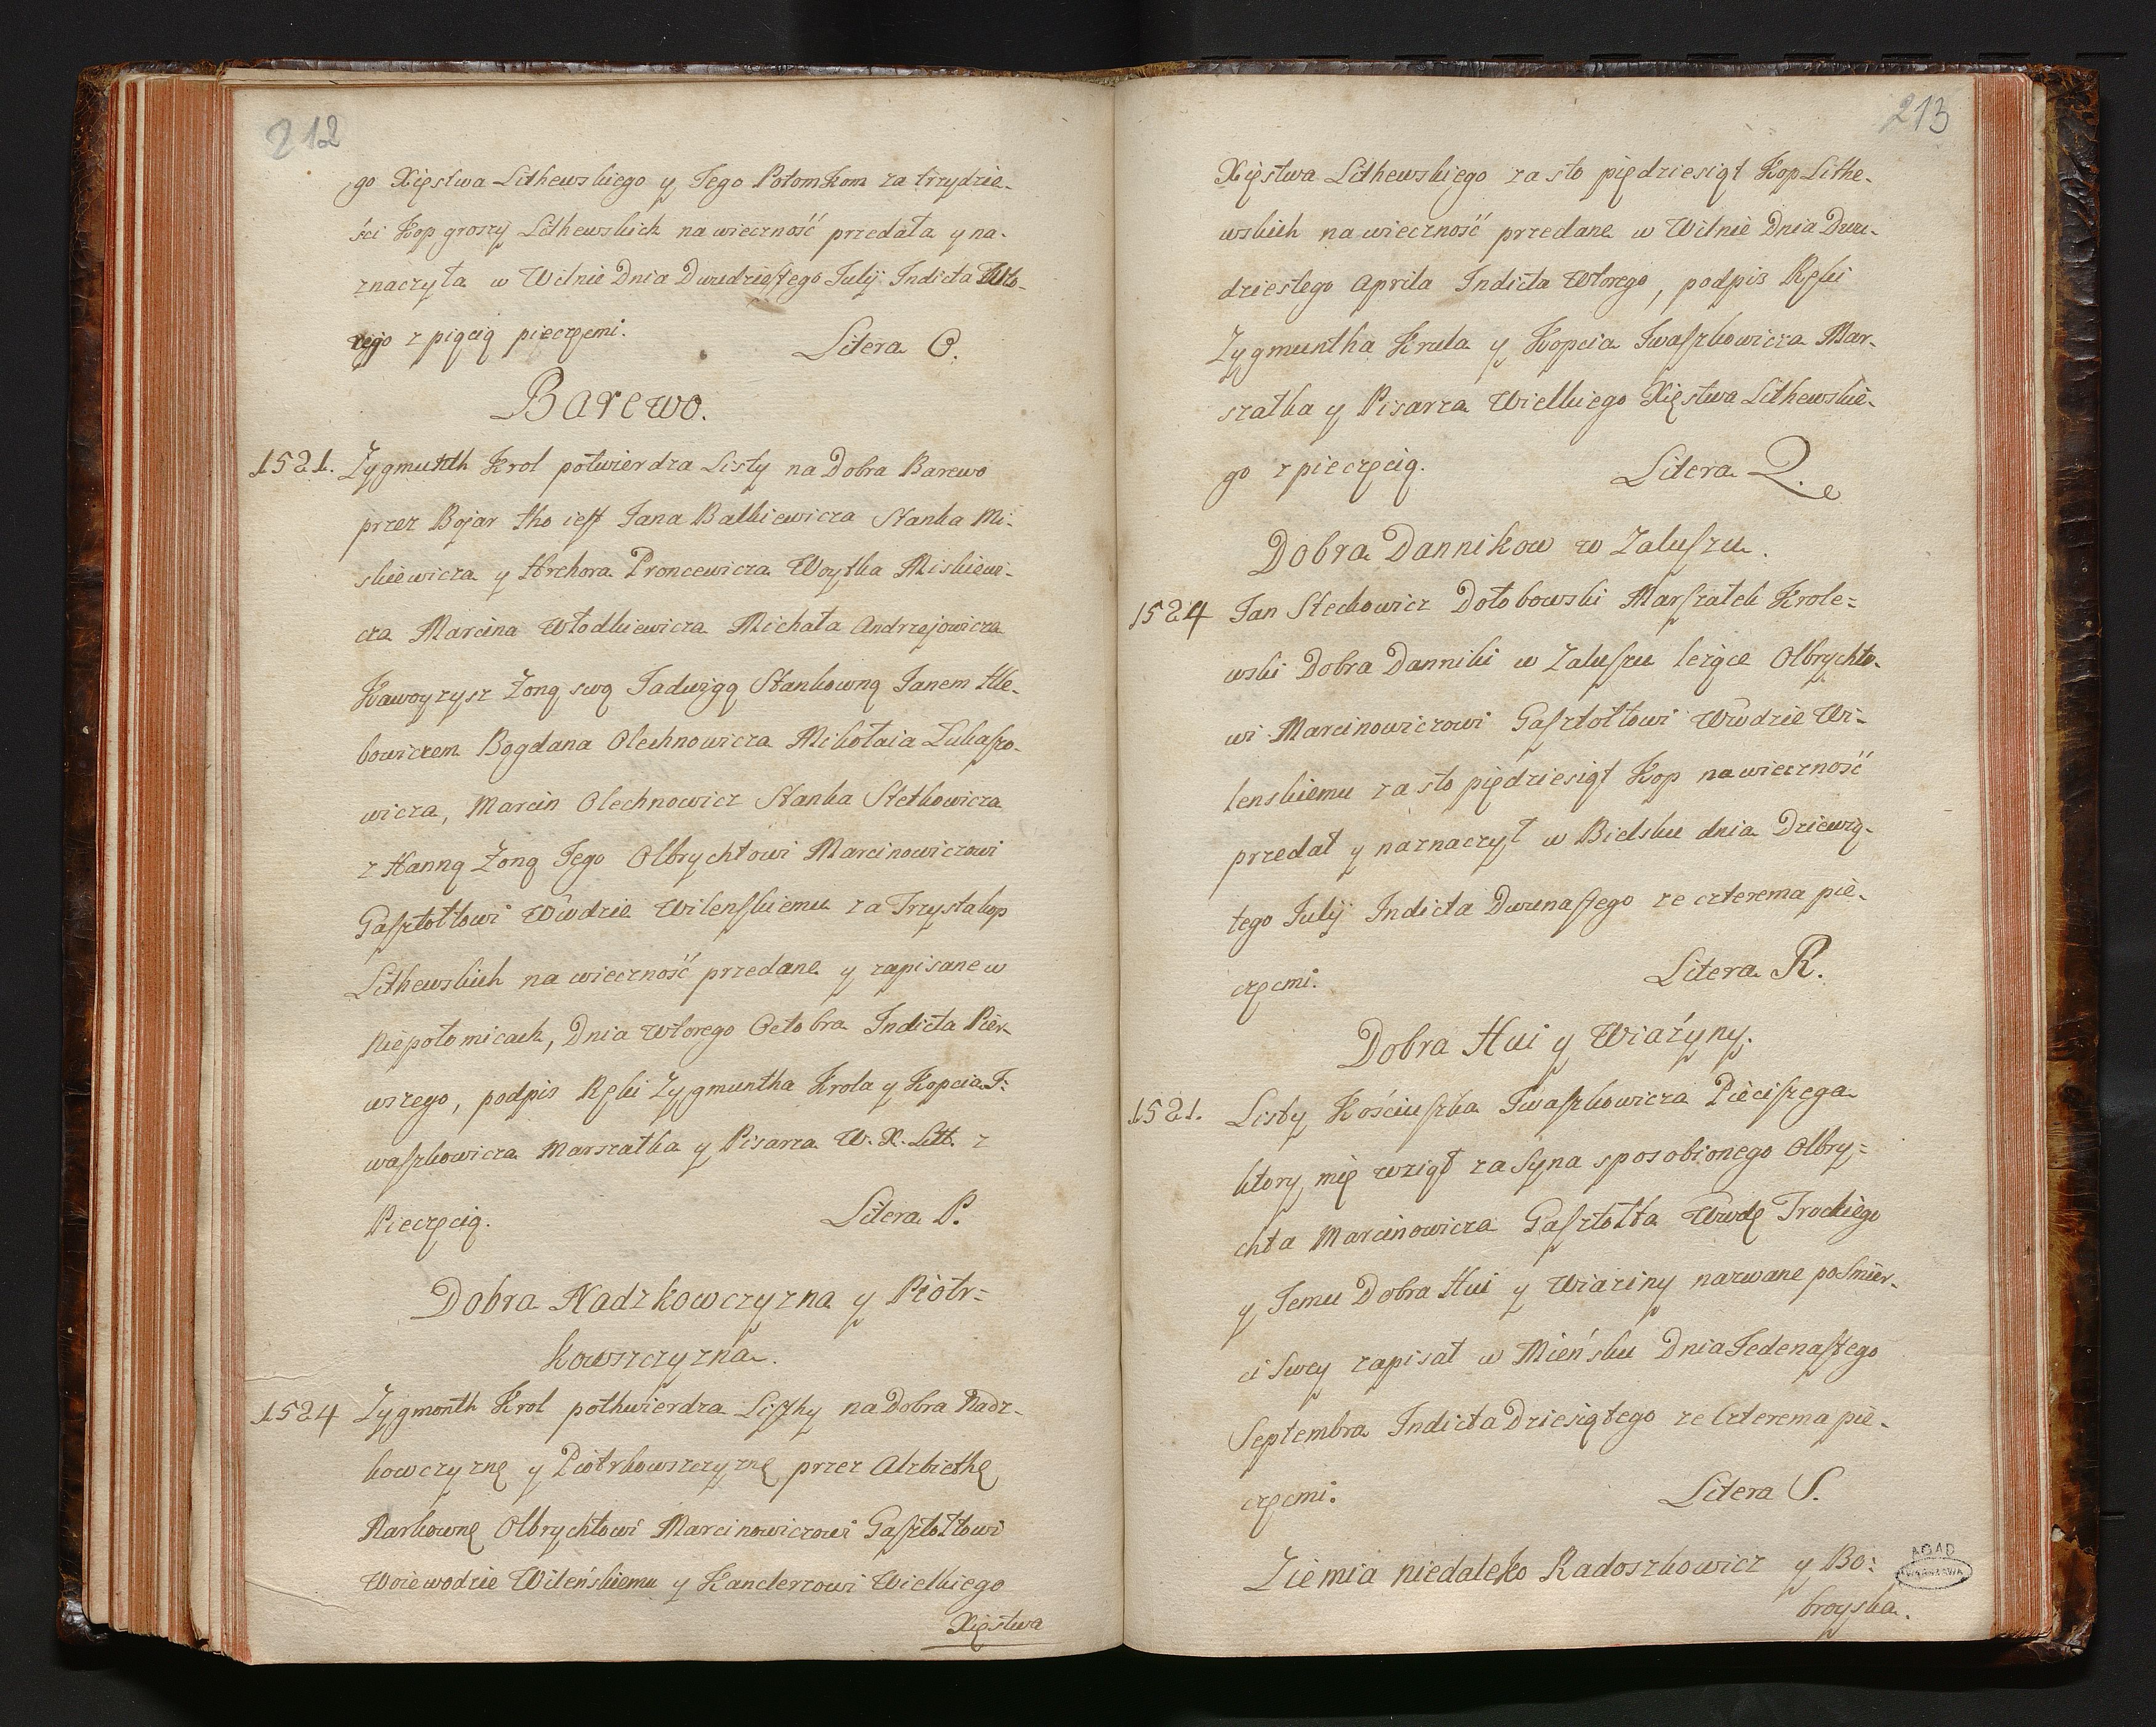 212
go Xięstwa Lithewskiego y Jego Potomkom za trzydzie-
ści Kop groszy Lithewskich na wieczność przedała y na-
znaczyła w Wilnie Dnia Dwudziestego Julij Indicta Wto-
rego z piącią pieczęćmi.
Litera O.
Barewo.
1521. Zygmunth Krol potwierdza Listy na Dobra Barewo
przez Bojar tho iest Jana Balkiewicza Stanka Mi-
skiewicza y Hrehora Proncewicza Woytka Miskiewi-
cza Marcina Włodkiewicza Michała Andrzejowicza
Kawoyzysz Zoną swą Jadwigą Stankowną Janem Hle-
bowiczem Bogdana Olechnowicza Mikołaia Łukaszo-
wicza, Marcin Olechnowicz Stanka Stetkowicza
z Hanną Zoną Jego Olbrychtowi Marcinowiczowi
Gasztołtowi Wwdzie Wilenskiemu za Trzysta kop
Lithewskich na wieczność przedane y zapisane w
Niepołomicach, Dnia wtorego Octobra Indicta Pier-
wszego, podpis Ręki Zygmuntha Krola y Kopcia I-
waszkowicza Marszałka y Pisarza W. X. Litt. z
Pieczęcią.
Litera P.
Dobra Nadzkowczyzna y Piotr=
kowszczyzna.
1524 Zygmonth Krol pothwierdza Listhy na Dobra Nadz-
kowczyznę y Piotrkowszczyznę przez Alzbiethę
Narkownę Olbrychtowi Marcinowiczowi Gasztołtowi
Woiewodzie Wileńskiemu y Kanclerzowi Wielkiego
Xięstwa
213
Xięstwa Lithewskiego za sto piędziesiąt Kop Lithe-
wskich na wieczność przedane w Wilnie Dnia Dwu-
dziestego Aprila Indicta Wtorego, podpis Ręki
Zygmuntha Krula y Kopcia Iwaszkowicza Mar-
szałka y Pisarza Wielkiego Xięstwa Lithewskie-
go z pieczęcią.
Litera Q.
Dobra Dannikow w Zaluszu.
1524 Jan Steckowicz Dołobowski Marszałek Krole=
wski Dobra Danniki w Zaluszu leżące Olbrychto-
wi Marcinowiczowi Gasztołtowi Wwdzie Wi-
lenskiemu za sto piędziesiąt Kop na wieczność
przedał y naznaczył w Bielsku dnia Dziewią-
tego Julij Indicta Dwunastego ze czterema pie-
częćmi.
Litera R.
Dobra Hui y Wiażyny.
1521. Listy Kościuszka Iwaszkowicza Pieciszega
ktory mię wziął za Syna sposobionego Olbry=
chta Marcinowicza Gasztołta Wwdę Trockiego
y Jemu Dobra Hui y Wiaziny nazwane po Smier-
ci Swey zapisał w Mieńsku Dnia Jedenastego
Septembra Indicta Dziesiątego ze Czterema pie-
częćmi.
Litera S.
Ziemia niedaleko Radoszkowicz y Bo=
broyska.
AGAD
WARSZAWA